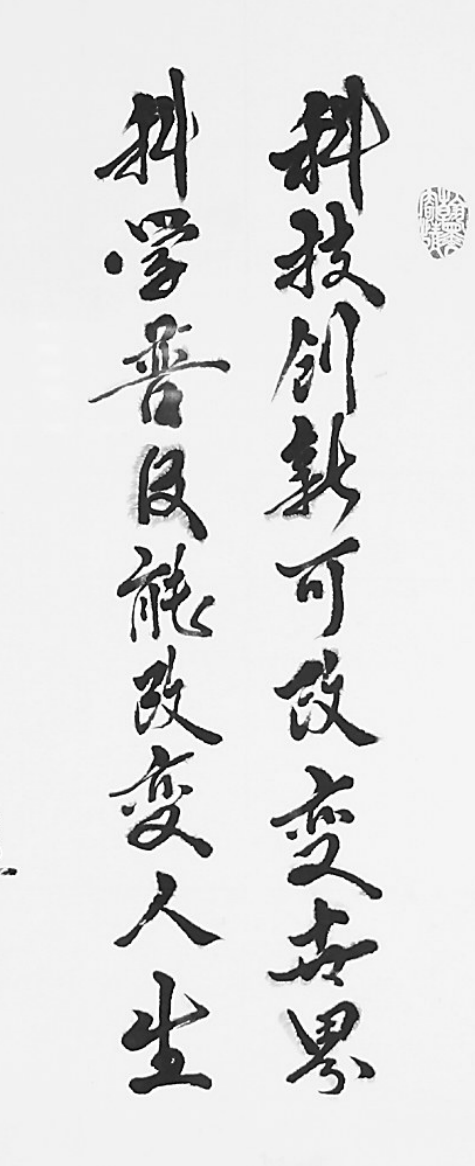 科技创新可改变世界
科学普及能改变人生